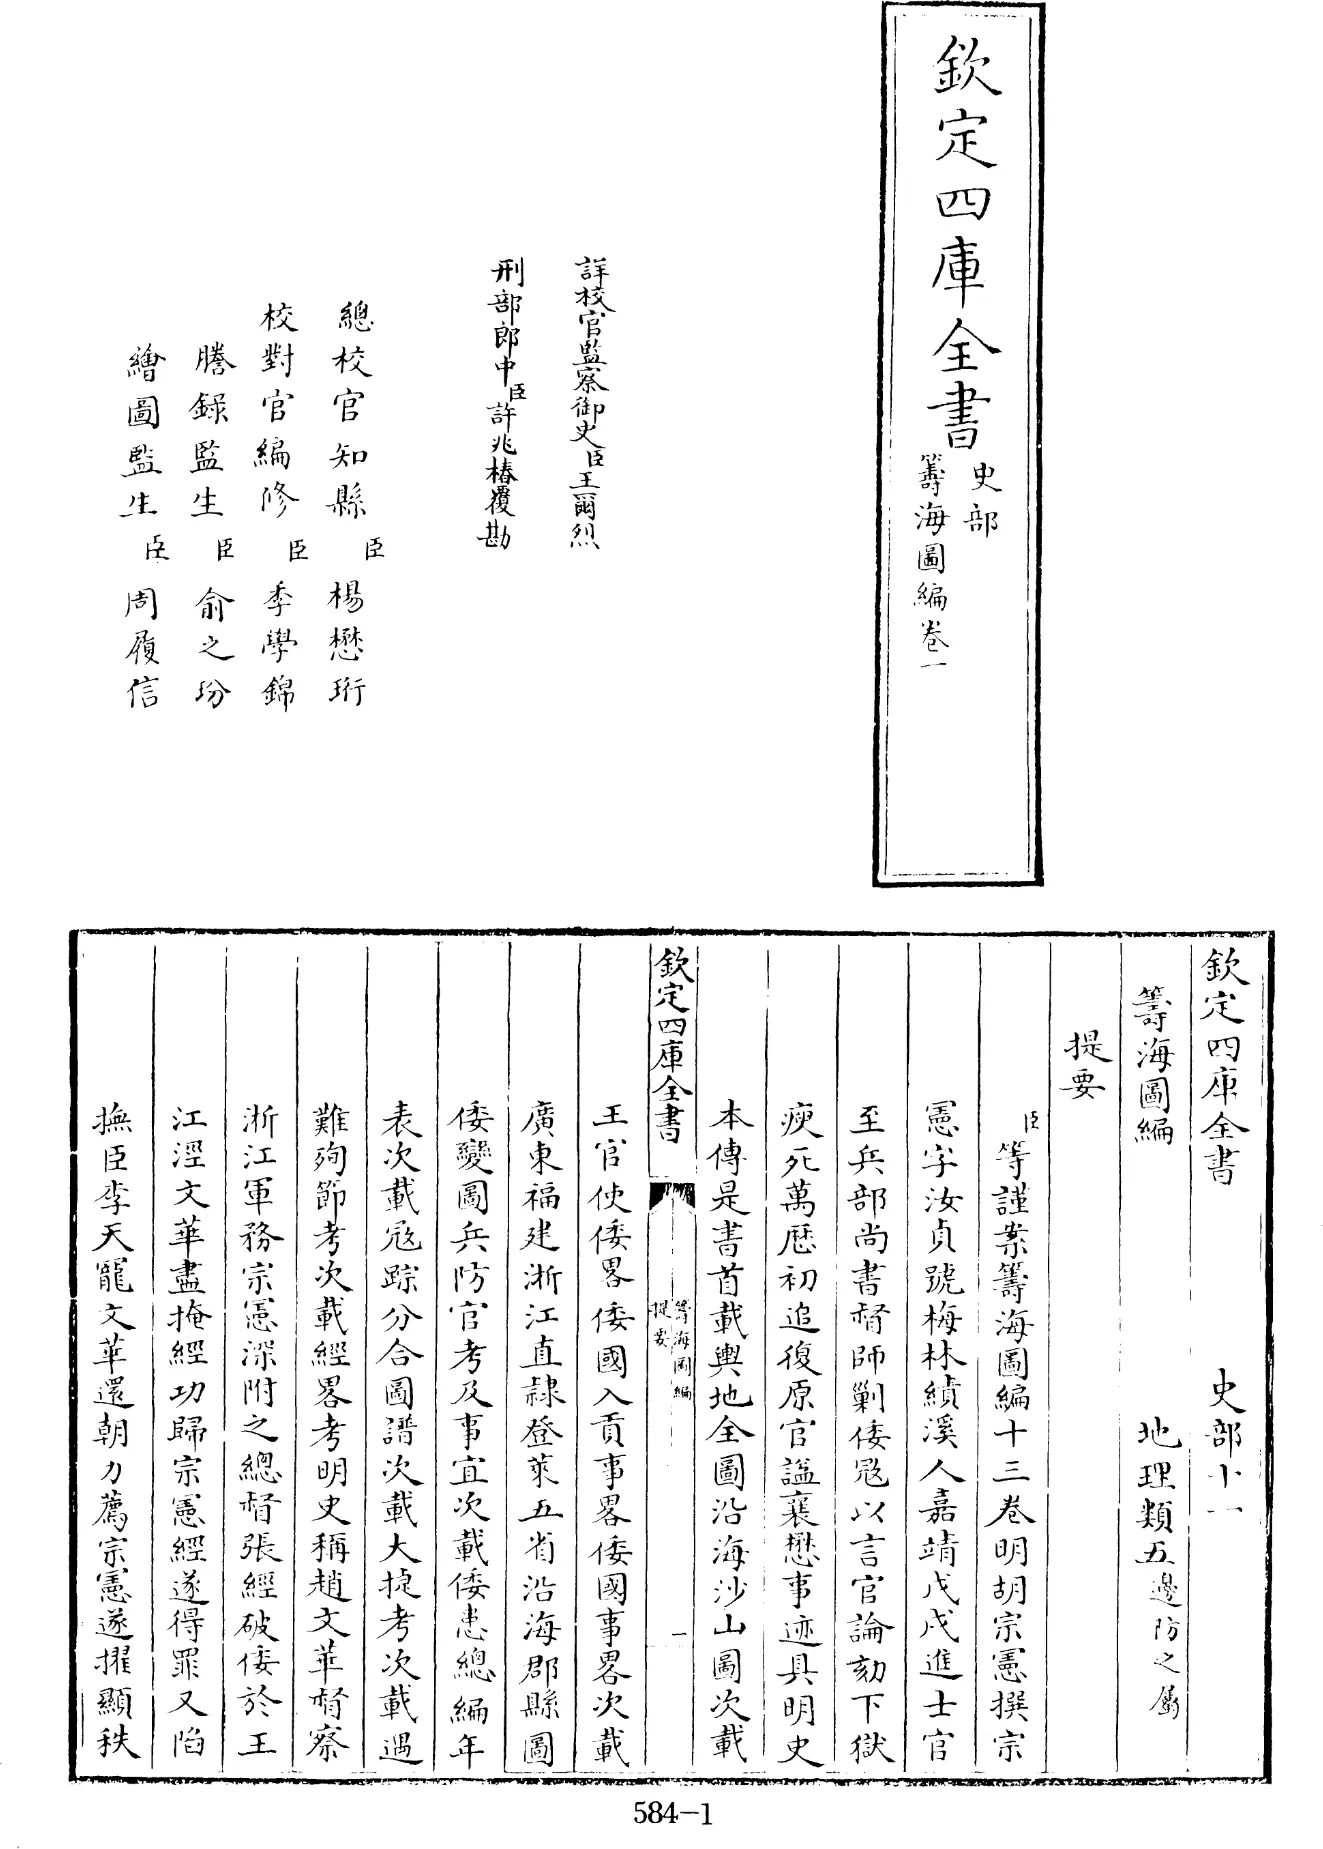 欽定四庫全書
史部
籌海圖編卷一
詳校官監察御史臣王爾烈
刑部郎中臣許兆椿覆勘
總校官知縣臣楊懋珩
校對官編修臣季學錦
謄錄監生臣俞之玢
繪圖監生臣周履信
欽定四庫全書 史部十一
籌海圖編 地理類五邊防之屬
提要
臣等謹案籌海圖編十三卷明胡宗憲撰宗
憲字汝貞號梅林績溪人嘉靖戊戌進士官
至兵部尚書督師剿倭寇以言官論劾下獄
瘐死萬歷初追復原官諡襄懋事迹具明史
本傳是書首載輿地全圖沿海沙山圖次載
欽定四庫全書
籌海圖編
提要
一
王官使倭畧倭國入貢事畧倭國事畧次載
廣東福建浙江直隷登萊五省沿海郡縣圖
倭變圖兵防官考及事宜次載倭患總編年
表次載寇踪分合圖譜次載大捷考次載遇
難殉節考次載經畧考明史稱趙文華督察
浙江軍務宗憲深附之總督張經破倭於王
江涇文華盡掩經功歸宗憲經遂得罪又陷
撫臣李天寵文華還朝力薦宗憲遂擢顯秩
584-1